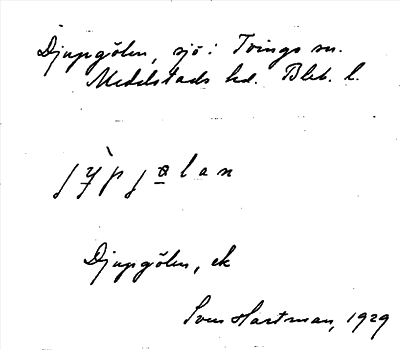 Djupgölen, sjö i Tvings sn.
Medelstads hd. Blek. l.
jỳpjølan
Djupgölen, ek
Sven Hartman, 1929